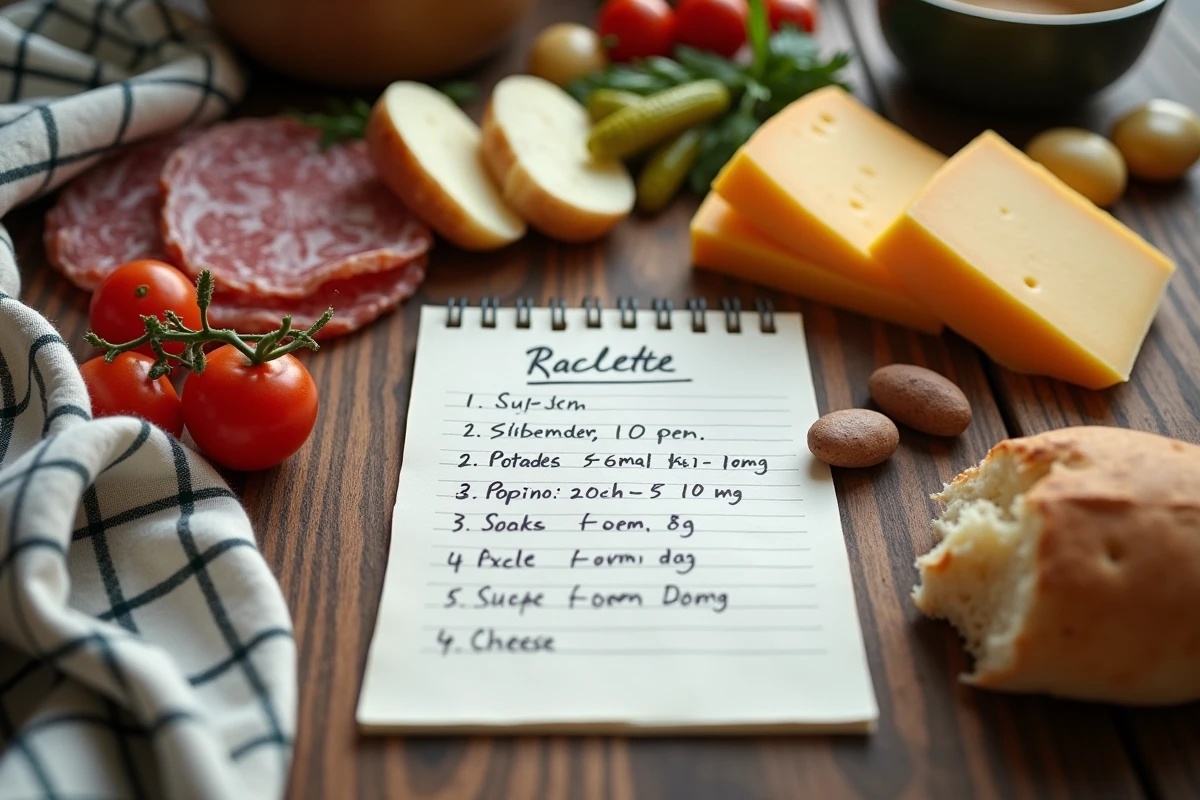 Raclette
1. Suj-Jcm
2. Slibemder, 10 pen.
2. Potades 5-6mal
3. Popino: 20ch-5 10 mg
3. Soaks foem. 8g
4 Pxcle formi dag
5. Sucpe fomm Domg
4. Cheese